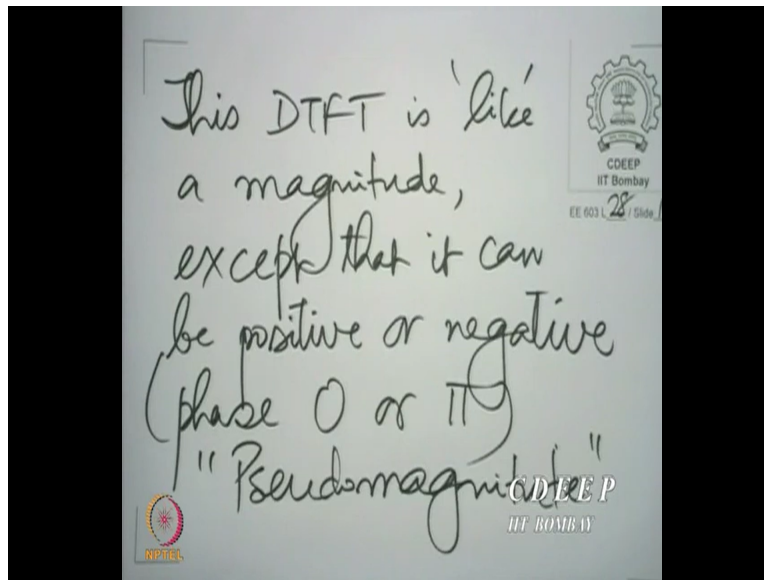 This DTFT is 'like'
a magnitude,
except that it can
be positive or negative
(phase 0 or π)
"Pseudomagnitude"
CDEEP
IIT Bombay
EE 603 L 28 / Slide
CDEEP
IIT BOMBAY
NPTEL